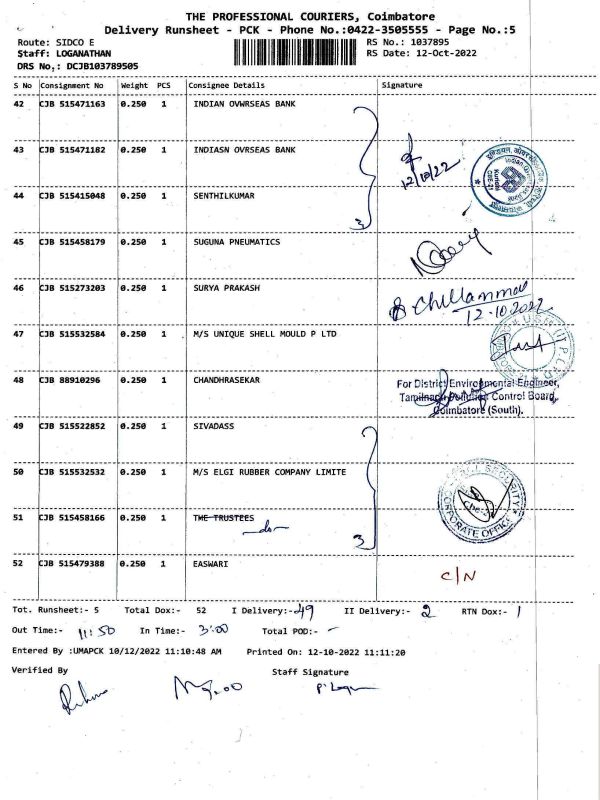 THE PROFESSIONAL COURIERS, Coimbatore
Delivery Runsheet - PCK - Phone No.:0422-3505555 - Page No.:5
Route: SIDCO E RS No.: 1037895
Staff: LOGANATHAN RS Date: 12-Oct-2022
DRS No,: DCJB103789505
S No Consignment No Weight PCS Consignee Details Signature
42 CJB 515471163 0.250 1 INDIAN OVWRSEAS BANK
43 CJB 515471182 0.250 1 INDIASN OVRSEAS BANK
12/10/22
44 CJB 515415048 0.250 1 SENTHILKUMAR
3
45 CJB 515458179 0.250 1 SUGUNA PNEUMATICS
46 CJB 515273203 0.250 1 SURYA PRAKASH
Chellammal
12-10.2022
47 CJB 515532584 0.250 1 M/S UNIQUE SHELL MOULD P LTD
48 CJB 88910296 0.250 1 CHANDHRASEKAR
For District Environmental Engineer,
Tamilnadu Pollution Control Board,
Coimbatore (South).
49 CJB 515522852 0.250 1 SIVADASS
50 CJB 515532532 0.250 1 M/S ELGI RUBBER COMPANY LIMITE
SECURITY
CORPORATE OFFICE
51 CJB 515458166 0.250 1 THE TRUSTEES
do
3
52 CJB 515479388 0.250 1 EASWARI
C/N
Tot. Runsheet:- 5 Total Dox:- 52 I Delivery:- 49 II Delivery:- 2 RTN Dox:- 1
Out Time:- 11:50 In Time:- 3:00 Total POD:- -
Entered By :UMAPCK 10/12/2022 11:10:48 AM Printed On: 12-10-2022 11:11:20
Verified By Staff Signature